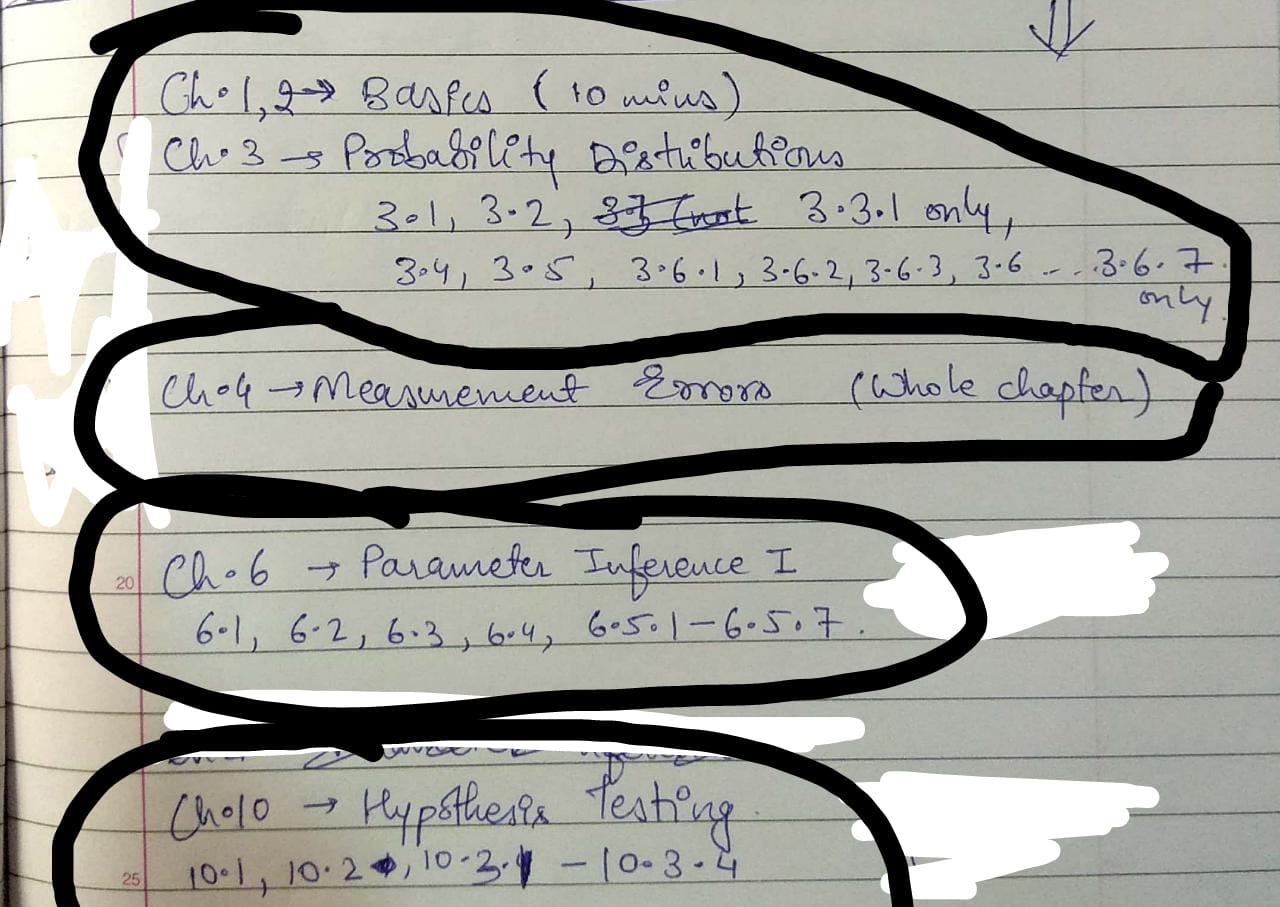 Ch.1,2→ Basics (10 mins)
Ch.3 → Probability Distributions
3.1, 3.2, 3.3.1 only,
3.4, 3.5, 3.6.1, 3.6.2, 3.6.3, 3.6 -- .3.6.7
only.
Ch.4 → Measurement Errors (Whole chapter)
20 Ch.6 → Parameter Inference I
6.1, 6.2, 6.3, 6.4, 6.5.1-6.5.7.
Ch.10 → Hypothesis Testing.
25 10.1, 10.2, 10.3.1 - 10.3.4